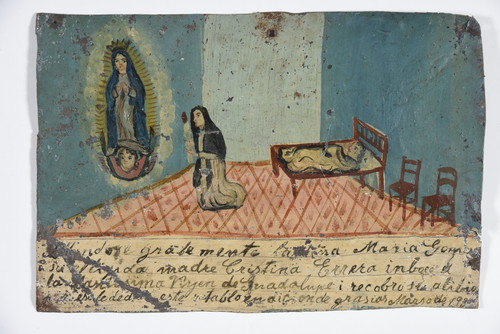 gravemente la niña Maria Gom
su querida madre Cristina Errera inboco a
la Santisima Virjen de Guadalupe i recobro su alibio
este retablo en accion de grasias Marso de 19